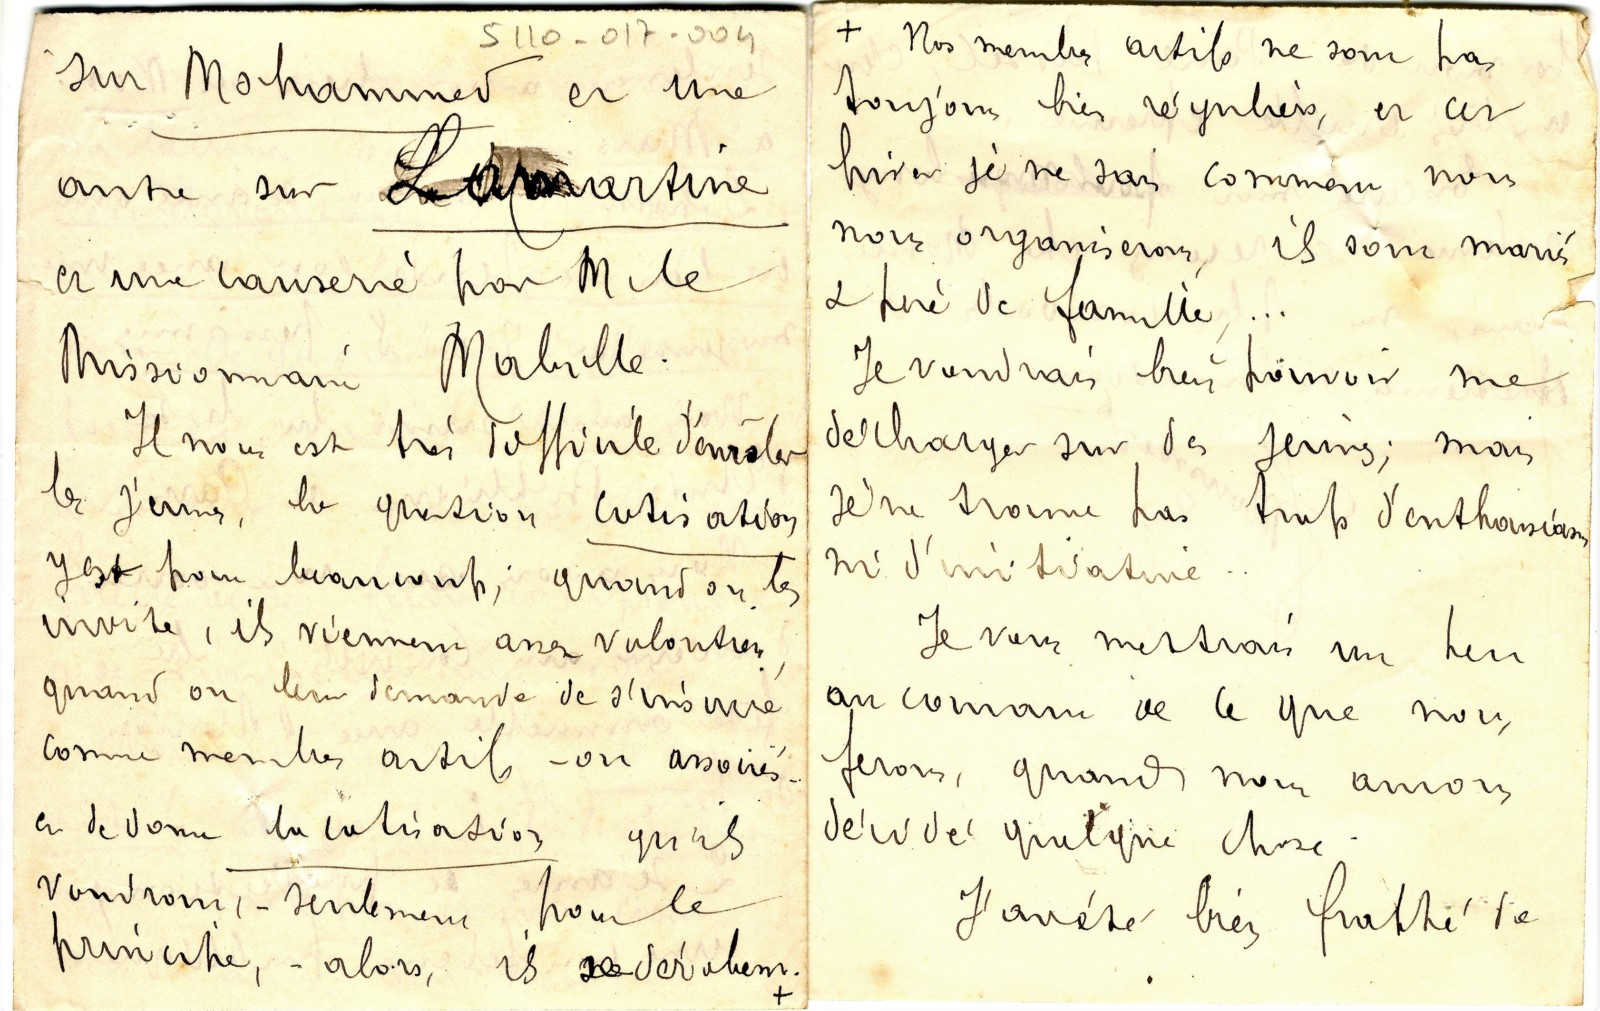 S110-017-004
sur Mohammed et une
autre sur Lamartine
et une causerie par M le
Missionnaire Mabille.
Il nous est très difficile d'enrôler
les jeunes, la question cotisation
y est pour beaucoup; quand on les
invite, ils viennent assez volontiers,
quand on leur demande de s'inscrire
comme membres actifs - ou associés -
et de donner la cotisation qu'ils
voudront, - seulement pour le
principe, - alors, ils se dérobent.
+
+ Nos membres actifs ne sont pas
toujours bien réguliers, et cet
hiver je ne sais comment nous
nous organiserons, ils sont mariés
& père de famille, ...
Je voudrais bien pouvoir me
décharger sur des jeunes; mais
je ne trouve pas trop d'enthousiasme
ni d'initiative..
Je vous mettrai un peu
au courant de ce que nous
ferons, quand nous aurons
décidé quelque chose.
J'ai été bien frappé de